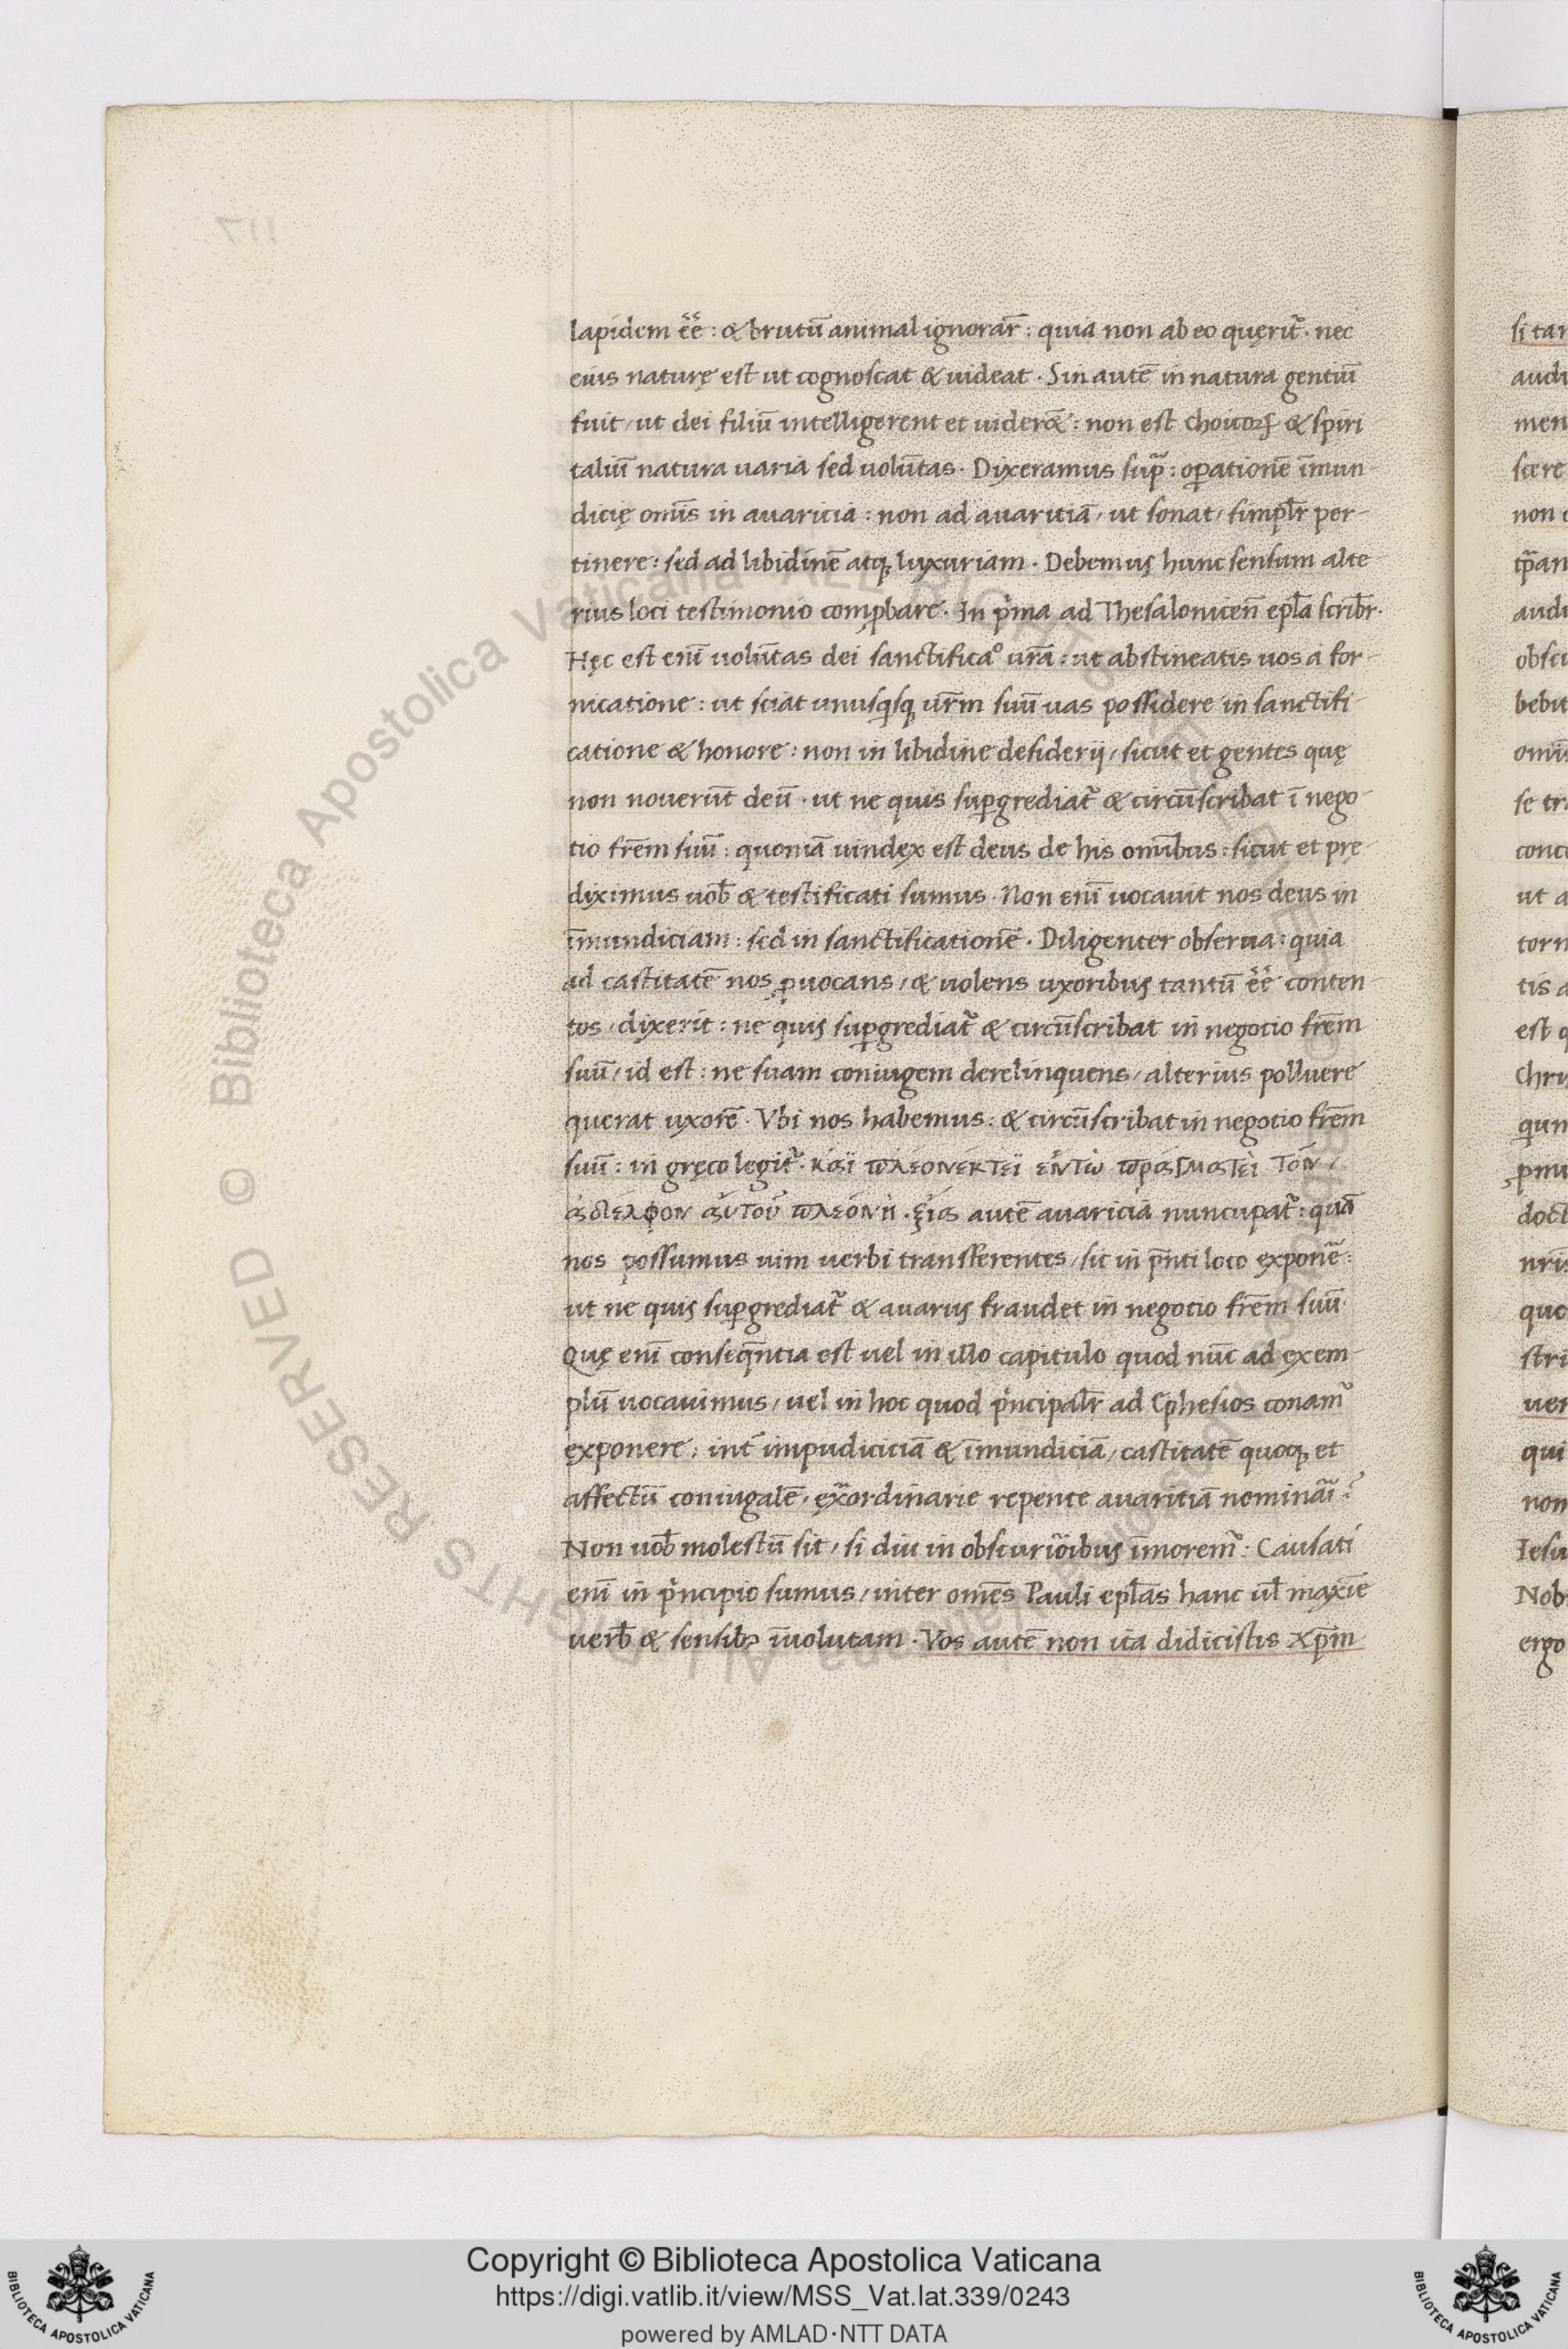 lapidem ēē: & brutū animal ignorar̄: quia non ab eo quęrit᷑. nec
eius naturę est ut cognoscat & uideat. Sin autē in natura gentiū
fuit, ut dei filiū intelligerent et uider&: non est choicoꝝ & spiri
taliū natura uaria sed uolūtas. Dixeramus sup̄: oꝑationē īmun-
dicię om̄is in auaricia: non ad auaritiā, ut sonat, simpl̄r per-
tinere: sed ad libidinē atq; luxuriam. Debemus hunc sensum alte-
rius loci testimonio comꝓbare. In p̍ma ad Thesalonicen̄ epl̄a scrib̄r.
Hęc est eni᷑ uolūtas dei sanctificaº ur̄a: ut abstineatis uos a for-
nicatione: ut sciat unusq̍sq; ur̄m suū uas possidere in sanctifi-
catione & honore: non in libidine desiderij, sicut et gentes quę
non nouerūt deū. ut ne quis suꝑgrediat᷑ & circūscribat ī nego-
tio fr̄em suū: quoniā uindex est deus de his omībus: sicut et prę-
diximus uob̄ & testificati sumus. Non enī uocauit nos deus in
īmundiciam: sed in sanctificationē. Diligenter obserua: quia
ad castitatē nos ꝓuocans, & uolens uxoribus tantū ēē conten
tos, dixerit: ne quis suꝑgrediat᷑ & circūscribat in negotio fr̄em
suū, id est: ne suam coniugem derelinquens, alterius polluere
querat uxorē. Vbi nos habemus: & circūscribat in negotio fr̄em
suū: in gręco legit᷑. καὶ πλεονεκτεῖ ἐν τῷ πράγματεὶ τὸν,
ἀδελφον αὐτοῦ πλεόνη.ξία autē auaricia nuncupat᷑: quā
nos possumus uim uerbi transferentes, sic in p̄nti loco exponē:
ut ne quis suꝑgrediat᷑ & auarus fraudet in negotio fr̄em suū.
Quę enī conseq̄ntia est uel in illo capitulo quod nūc ad exem-
plū uocauimus, uel in hoc quod p̍ncipalr̄ ad Ephesios conam᷑
exponere: int᷑ impudiciciā & īmundiciā, castitatē quoq; et
affectū coniugalē, ex̄ordinarie repente auaritiā nomināi?
Non uob̄ molestū sit, si diu in obscurioībus īmorem᷑: Causati
enī in p̍ncipio sumus, inter om̄es Pauli epl̄as hanc ul̄ maxīe
uerb̄ & sensibꝫ īuolutam. Vos autē non ita didicistis xp̄m
Copyright © Biblioteca Apostolica Vaticana
https://digi.vatlib.it/view/MSS_Vat.lat.339/0243
powered by AMLAD·NTT DATA